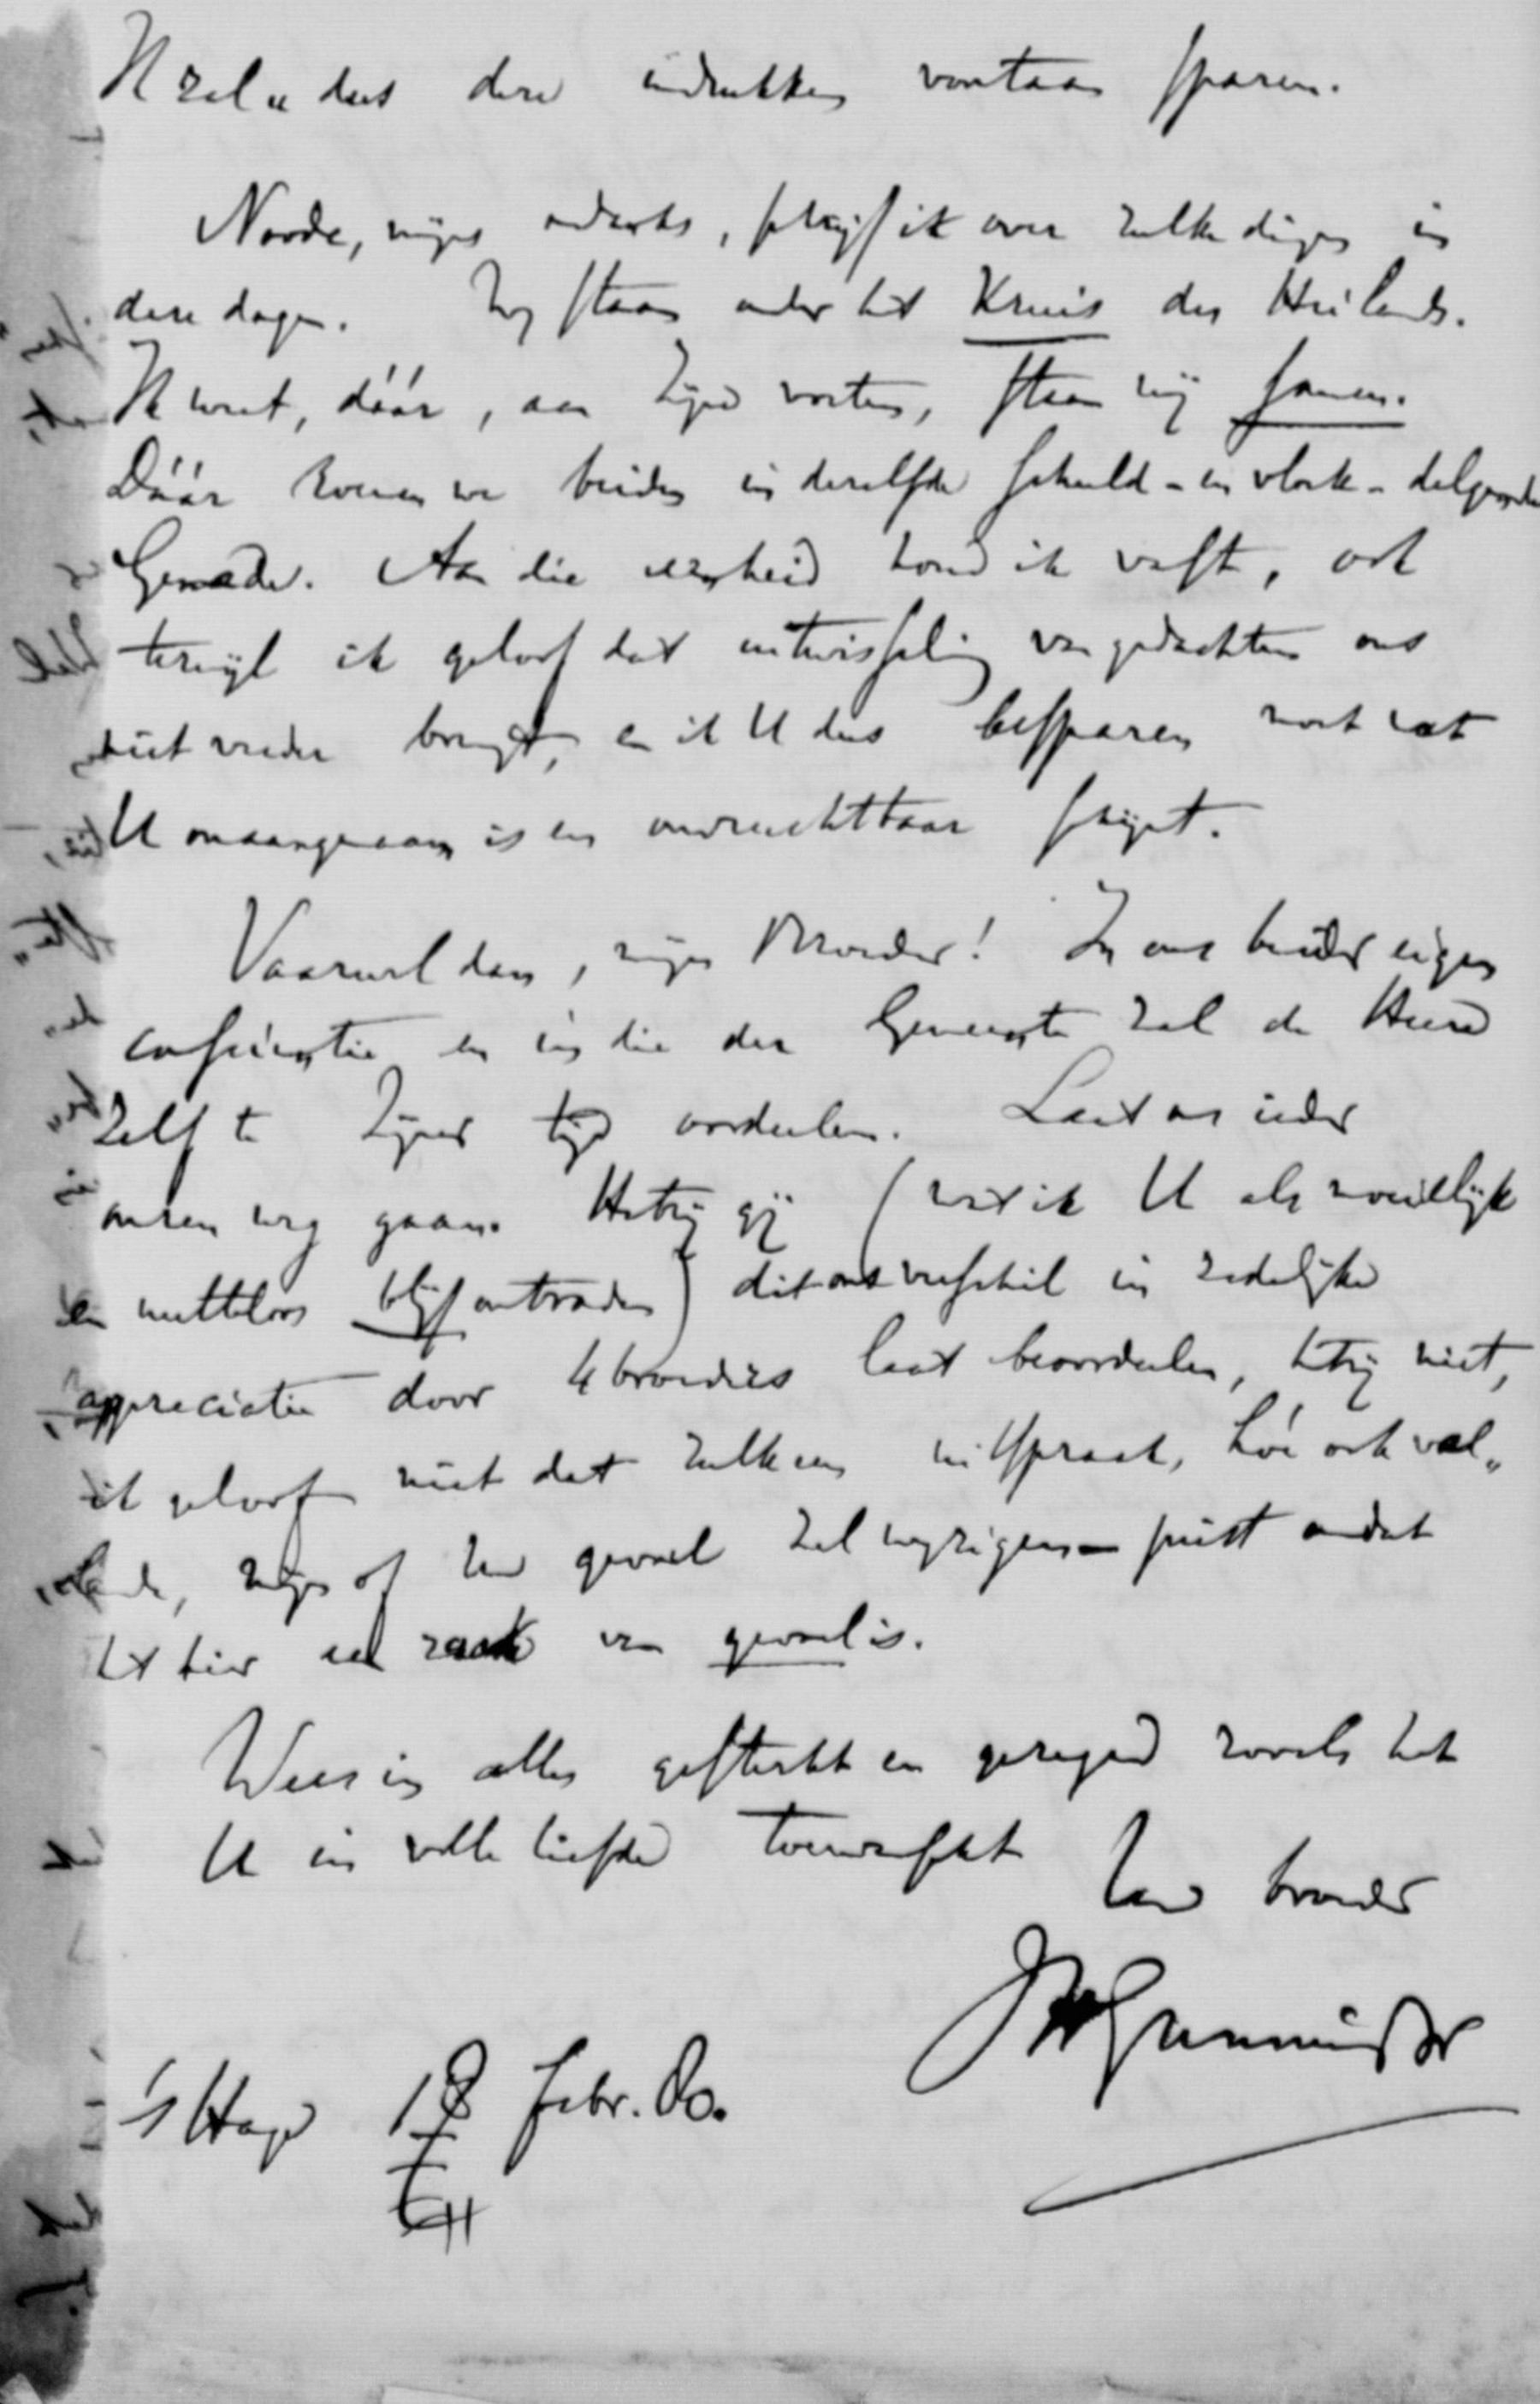 Ik zal u dus deze indrukken voortaan sparen.
Noode, mijns ondanks, schrijf ik over zulke dingen in
deze dagen. Wij staan onder het Kruis des Heilands.
Ik weet, dáár, aan Zijne voeten, staan wij samen.
Dáár roemen we beiden in dezelfde schuld- en vloek-delgende
Genade. Aan die eenheid houd ik vast, ook
terwijl ik geloof dat uitwisseling van gedachten ons
niet verder brengt, en ik U dus besparen moet wat
U onaangenaam is en onvruchtbaar schijnt.
Vaarwel dan, mijn Broeder! In ons beider eigen
consciëntie en in die der Gemeente zal de Heere
Zelf te Zijner tijd oordeelen. Laat ons ieder
onzen weg gaan. Hetzij gij (wat ik U als moeilijk
en nutteloos blijf ontraden) dit ons verschil in zedelijke
appreciatie door 4 broeders laat beoordeelen, hetzij niet,
ik geloof niet dat zulk een uitspraak, hóe ook val„
„lende, mijn of Uw gevoel zal wijzigen – juist omdat
het hier een zaak van gevoel is.
Wees in alles gesterkt en gezegend zooals het
U in volle liefde toewenscht
Uw broeder
JHGunningJr
's Hage 18 Febr. 80.